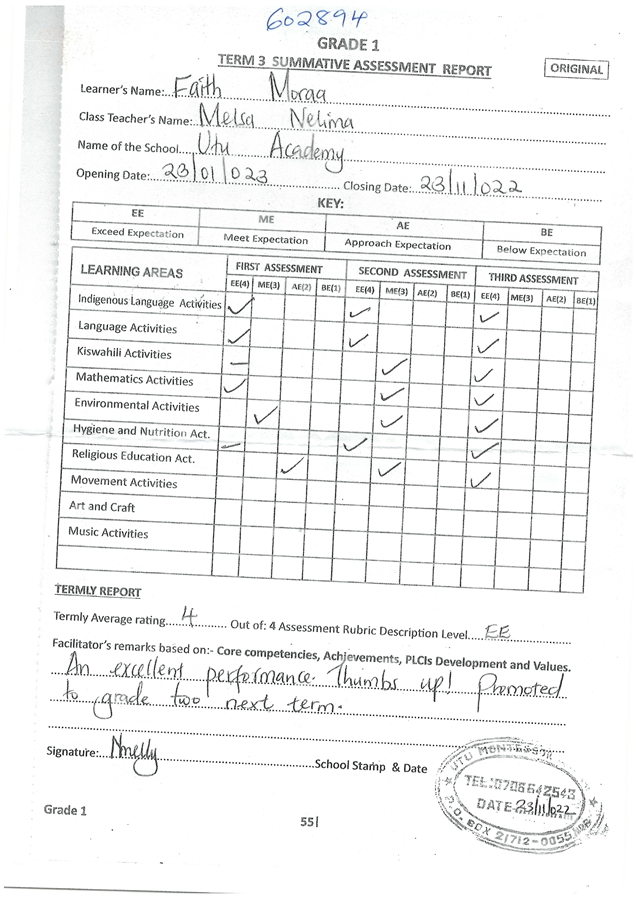 602894
GRADE 1
TERM 3 SUMMATIVE ASSESSMENT REPORT
ORIGINAL
Learner's Name: Faith Moraa
Class Teacher's Name: Melsa Nelima
Name of the School Utu Academy
Opening Date: 23/01/023 Closing Date: 23/11/022
KEY:
EE ME AE BE
Exceed Expectation Meet Expectation Approach Expectation Below Expectation
LEARNING AREAS FIRST ASSESSMENT SECOND ASSESSMENT THIRD ASSESSMENT
EE(4) ME(3) AE(2) BE(1) EE(4) ME(3) AE(2) BE(1) EE(4) ME(3) AE(2) BE(1)
Indigenous Language Activities ✓ ✓ ✓
Language Activities ✓ ✓ ✓
Kiswahili Activities – ✓ ✓
Mathematics Activities ✓ ✓ ✓
Environmental Activities ✓ ✓ ✓
Hygiene and Nutrition Act. – ✓ ✓
Religious Education Act. ✓ ✓ ✓
Movement Activities
Art and Craft
Music Activities
TERMLY REPORT
Termly Average rating 4 Out of: 4 Assessment Rubric Description Level EE
Facilitator's remarks based on:- Core competencies, Achievements, PLCIs Development and Values.
An excellent performance. Thumbs up! Promoted
to grade two next term.
Signature: Nmelly School Stamp & Date
UTU MONTESSORI
TEL: 0706642543
DATE 23/11/022
P.O. BOX 21712-0055
Grade 1
55|